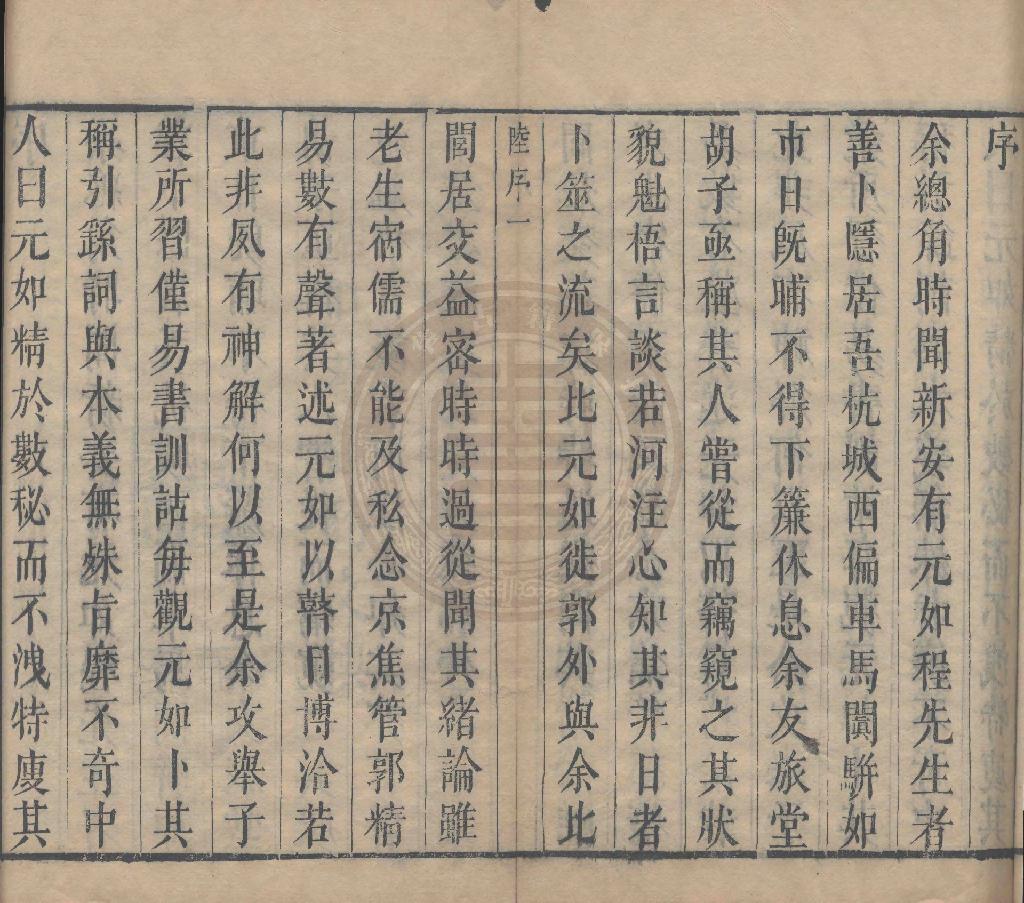 序
余總角時聞新安有元如程先生者
善卜隱居吾杭城西偏車馬闐騈如
市日旣晡不得下簾休息余友旅堂
胡子亟稱其人嘗從而竊窺之其狀
貌魁梧言談若河注心知其非日者
卜筮之流矣比元如徙郭外與余比
陸序一
閭居交益宻時時過從聞其緒論雖
老生宿儒不能及私念京焦管郭精
易數有聲著述元如以瞽目博洽若
此非夙有神解何以至是余攻舉子
業所習僅易書訓詁每觀元如卜其
稱引繇詞與本義無殊㫖靡不奇中
人曰元如精於數秘而不洩特廋其